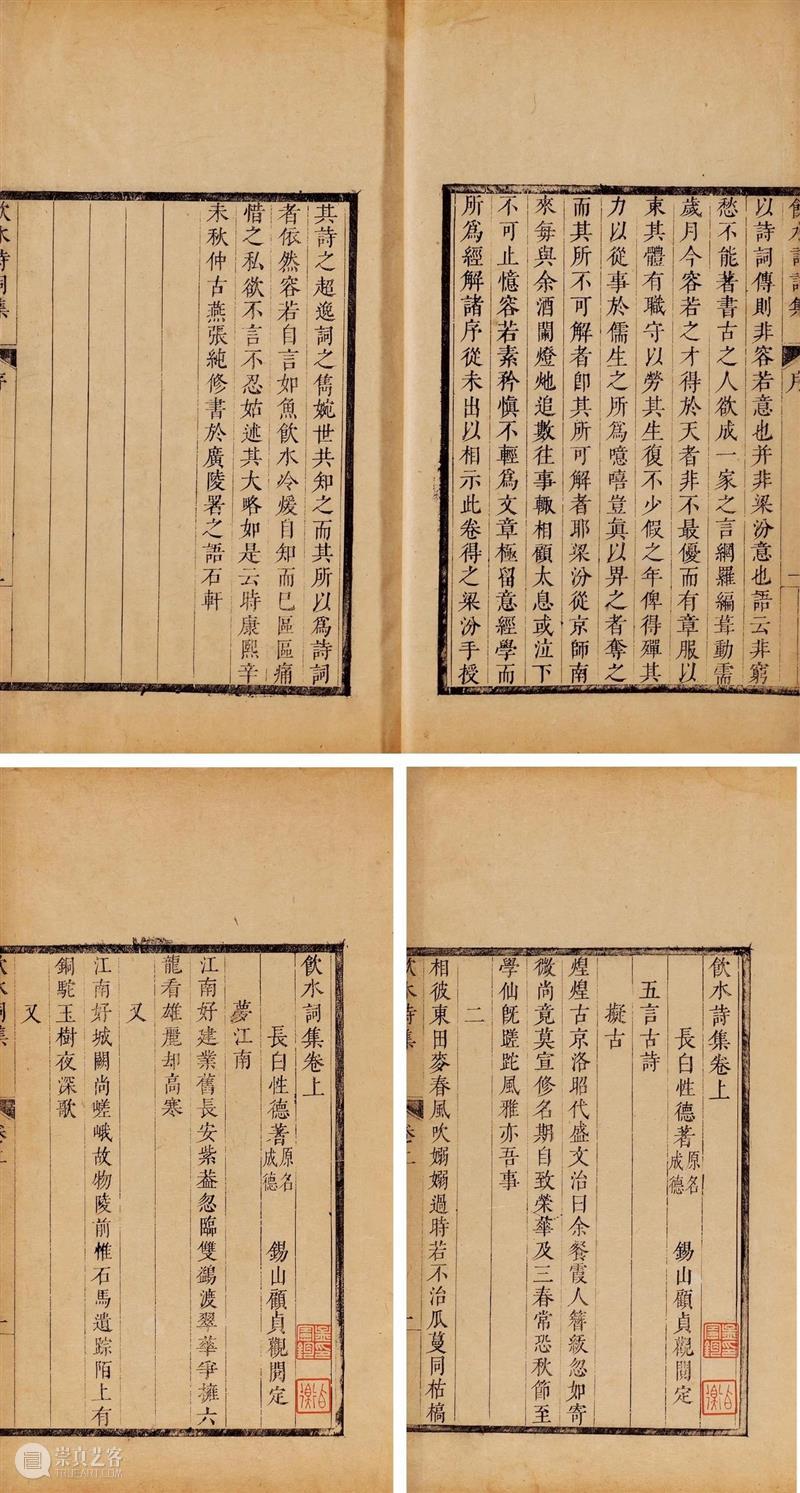 飲水詩詞集
序
以詩詞傳則非容若意也并非梁汾意也語云非窮
愁不能著書古之人欲成一家之言網羅編葺動需
歲月今容若之才得於天者非不最優而有章服以
束其體有職守以勞其生復不少假之年俾得殫其
力以從事於儒生之所為噫嘻豈眞以畀之者奪之
而其所不可解者卽其所可解者耶梁汾從京師南
來每與余酒闌燈灺追數往事輙相顧太息或泣下
不可止憶容若素矜愼不輕為文章極留意經學而
所為經解諸序從未出以相示此卷得之梁汾手授
其詩之超逸詞之雋婉世共知之而其所以為詩詞
者依然容若自言如魚飲水冷煖自知而已區區痛
惜之私欲不言不忍姑述其大略如是云時康熙辛
未秋仲古燕張純修書於廣陵署之語石軒
飲水詩詞集
序
飲水詩集卷上
長白性德著 原名成德 錫山顧貞觀閱定
五言古詩
擬古
煌煌古京洛昭代盛文治日余餐霞人簪紱忽如寄
微尚竟莫宣修名期自致榮華及三春常恐秋節至
學仙旣蹉跎風雅亦吾事
二
相彼東田麥春風吹嫋嫋過時若不治瓜蔓同枯槁
飲水詩集
飲水詞集卷上
長白性德著 原名成德 錫山顧貞觀閱定
夢江南
江南好建業舊長安紫葢忽臨雙鷁渡翠華爭擁六
龍看雄麗却高寒
又
江南好城闕尚嵯峨故物陵前惟石馬遺踪陌上有
銅駝玉樹夜深歌
又
飲水詞集
崇真艺客
TRUEART.COM